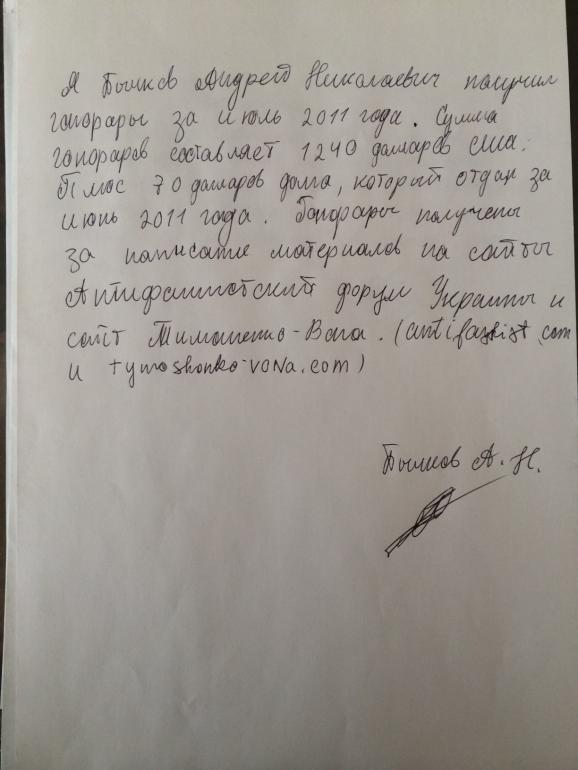 Я Бычков Андрей Николаевич получил
гонорары за июль 2011 года. Сумма
гонораров составляет 1240 долларов сша.
Плюс 70 долларов долга, который отдан за
июнь 2011 года. Гонорары получены
за написание материалов на сайты
Антифашистский форум Украины и
сайт Тимошенко-Вона. (antifashist.com
и tymoshenko-vona.com)
Бычков А. Н.